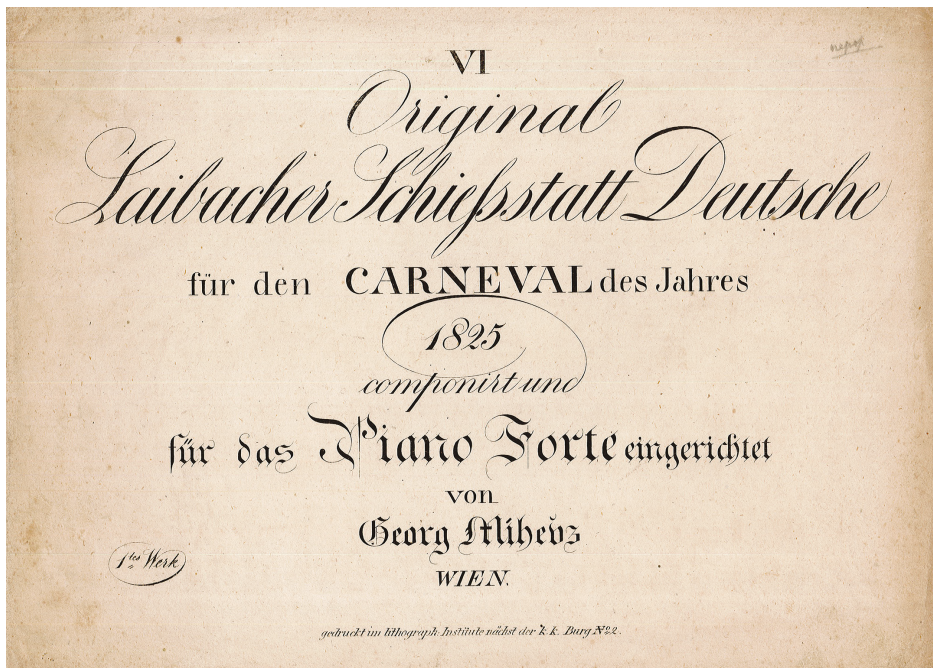 VI
Original
Laibacher Schießstatt Deutsche
für den CARNEVAL des Jahres
1825
componirt und
für das Piano Forte eingerichtet
von
Georg Mihevz
WIEN.
1tes Werk
gedruckt im lithograph. Institute nächst der k. k. Burg No 2.